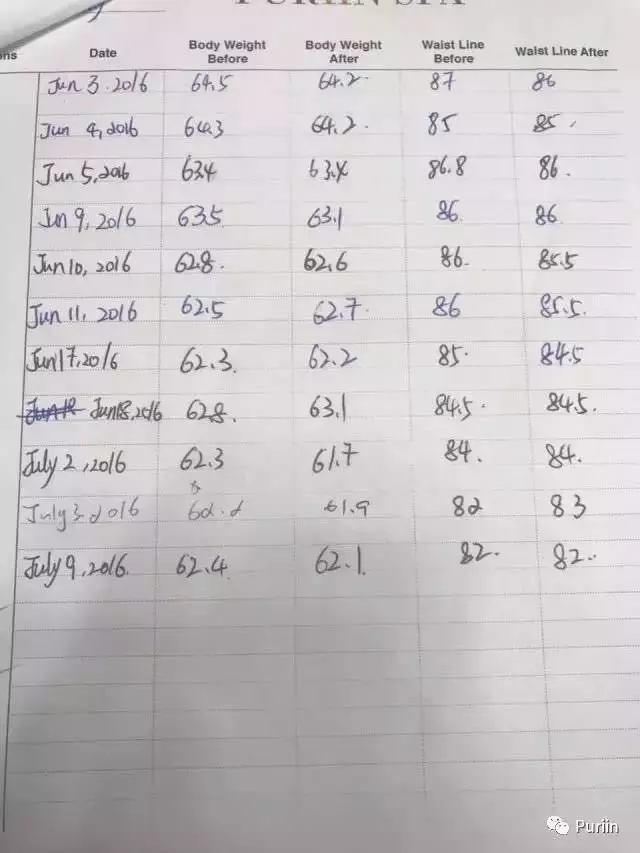 PURIIN SPA
ns Date Body Weight Before Body Weight After Waist Line Before Waist Line After
Jun 3. 2016 64.5 64.2. 87 86
Jun 4, 2016 64.3 64.2. 85 85.
Jun 5, 2016 63.4 63.4 86.8 86.
Jun 9, 2016 63.5 63.1 86 86.
Jun 10, 2016 62.8. 62.6 86. 85.5
Jun 11, 2016 62.5 62.7. 86 85.5.
Jun 17, 2016 62.3. 62.2 85. 84.5
Jun 18, 2016 62.8. 63.1 84.5. 84.5.
July 2, 2016 62.3 61.7 84. 84.
July 3. 2016 62.2 61.9 82 83
July 9, 2016. 62.4 62.1. 82. 82..
Puriin